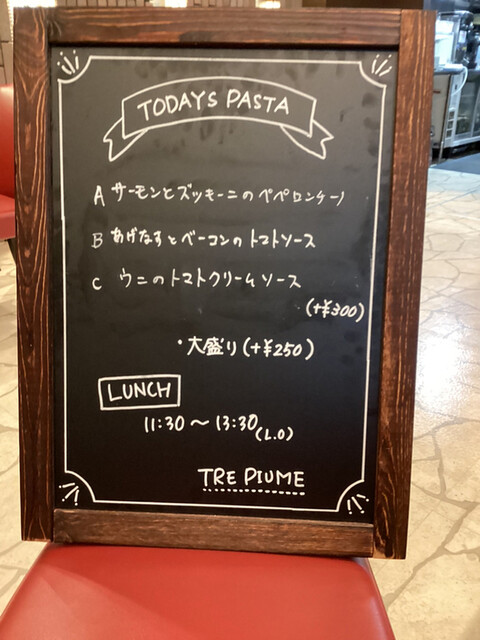 TODAYS PASTA
A サーモンとズッキーニのペペロンチーノ
B あげなすとベーコンのトマトソース
C ウニのトマトクリームソース
(+¥300)
・大盛り(+¥250)
LUNCH
11:30〜13:30(L.O)
TRE PIUME